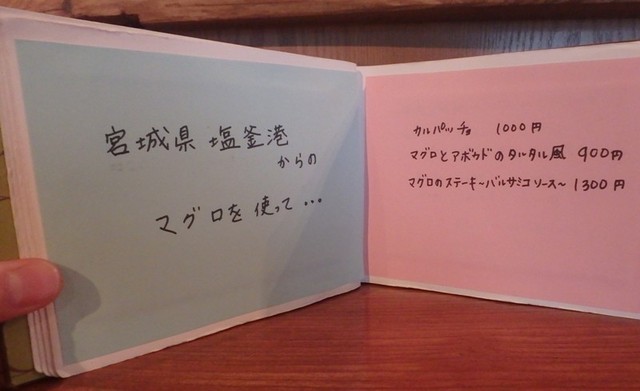 宮城県 塩釜港
からの
マグロを使って…
カルパッチョ 1000円
マグロとアボカドのタルタル風 900円
マグロのステーキ~バルサミコソース~ 1300円